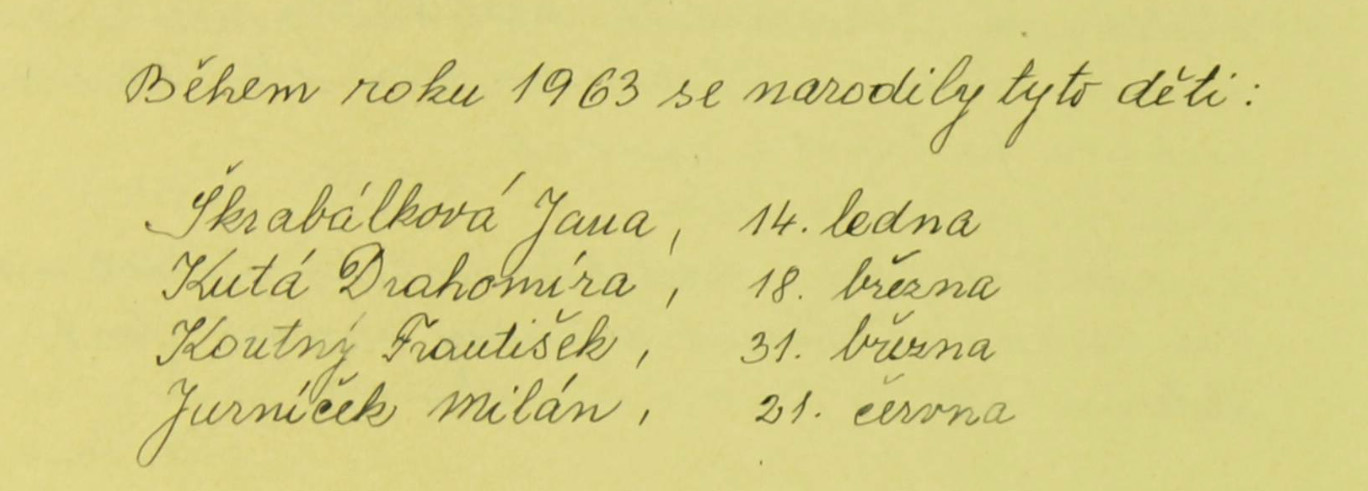 Během roku 1963 se narodily tyto děti:
Škrabálková Jana, 14. ledna
Kutá Drahomíra, 18. března
Koutný František, 31. března
Jurníček Milán, 21. června